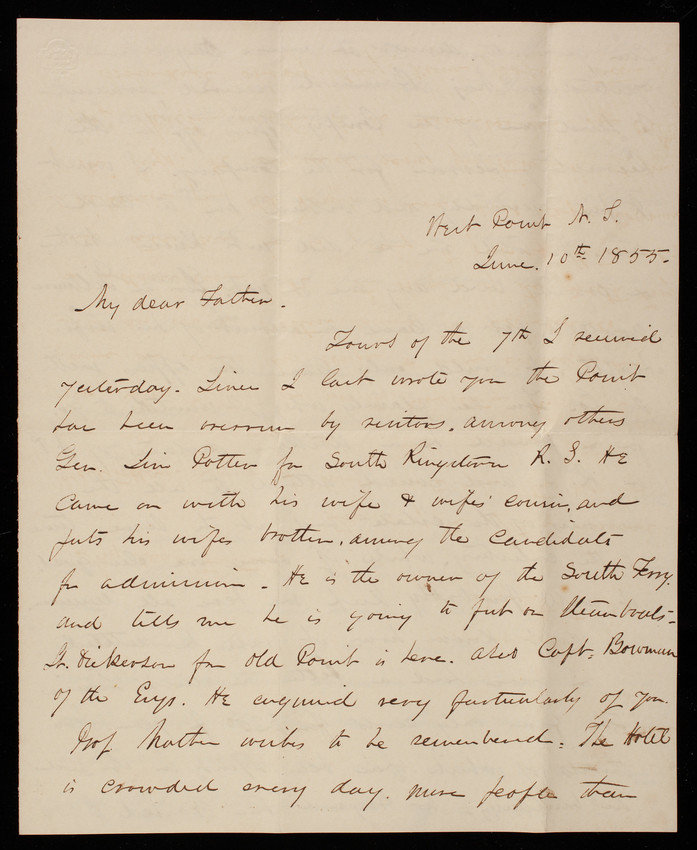 West Point N. Y.
June. 10th 1855.
My dear Father.
Yours of the 7th I received
yesterday. Since I last wrote you the Point
has been overrun by visitors. among others
Gen. Potter from South Kingstown R. I. He
came on with his wife & wifes cousin, and
puts his wifes brother, among the candidats
for admission. He is the owner of the South Ferry.
and tells me he is going to put on Steamboats-
Dickerson from Old Point is here. also Capt. Bowman
of the Engs. He enquired very particularly of you.
Prof Mather wishes to be remembered. The Hotel
is crowded every day. more people than